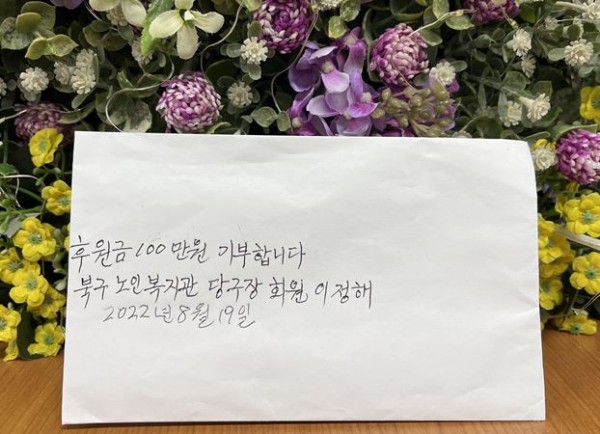 후원금 100만원 기부합니다
북구 노인복지관 당구장 회원 이정해
2022년 8월 19일